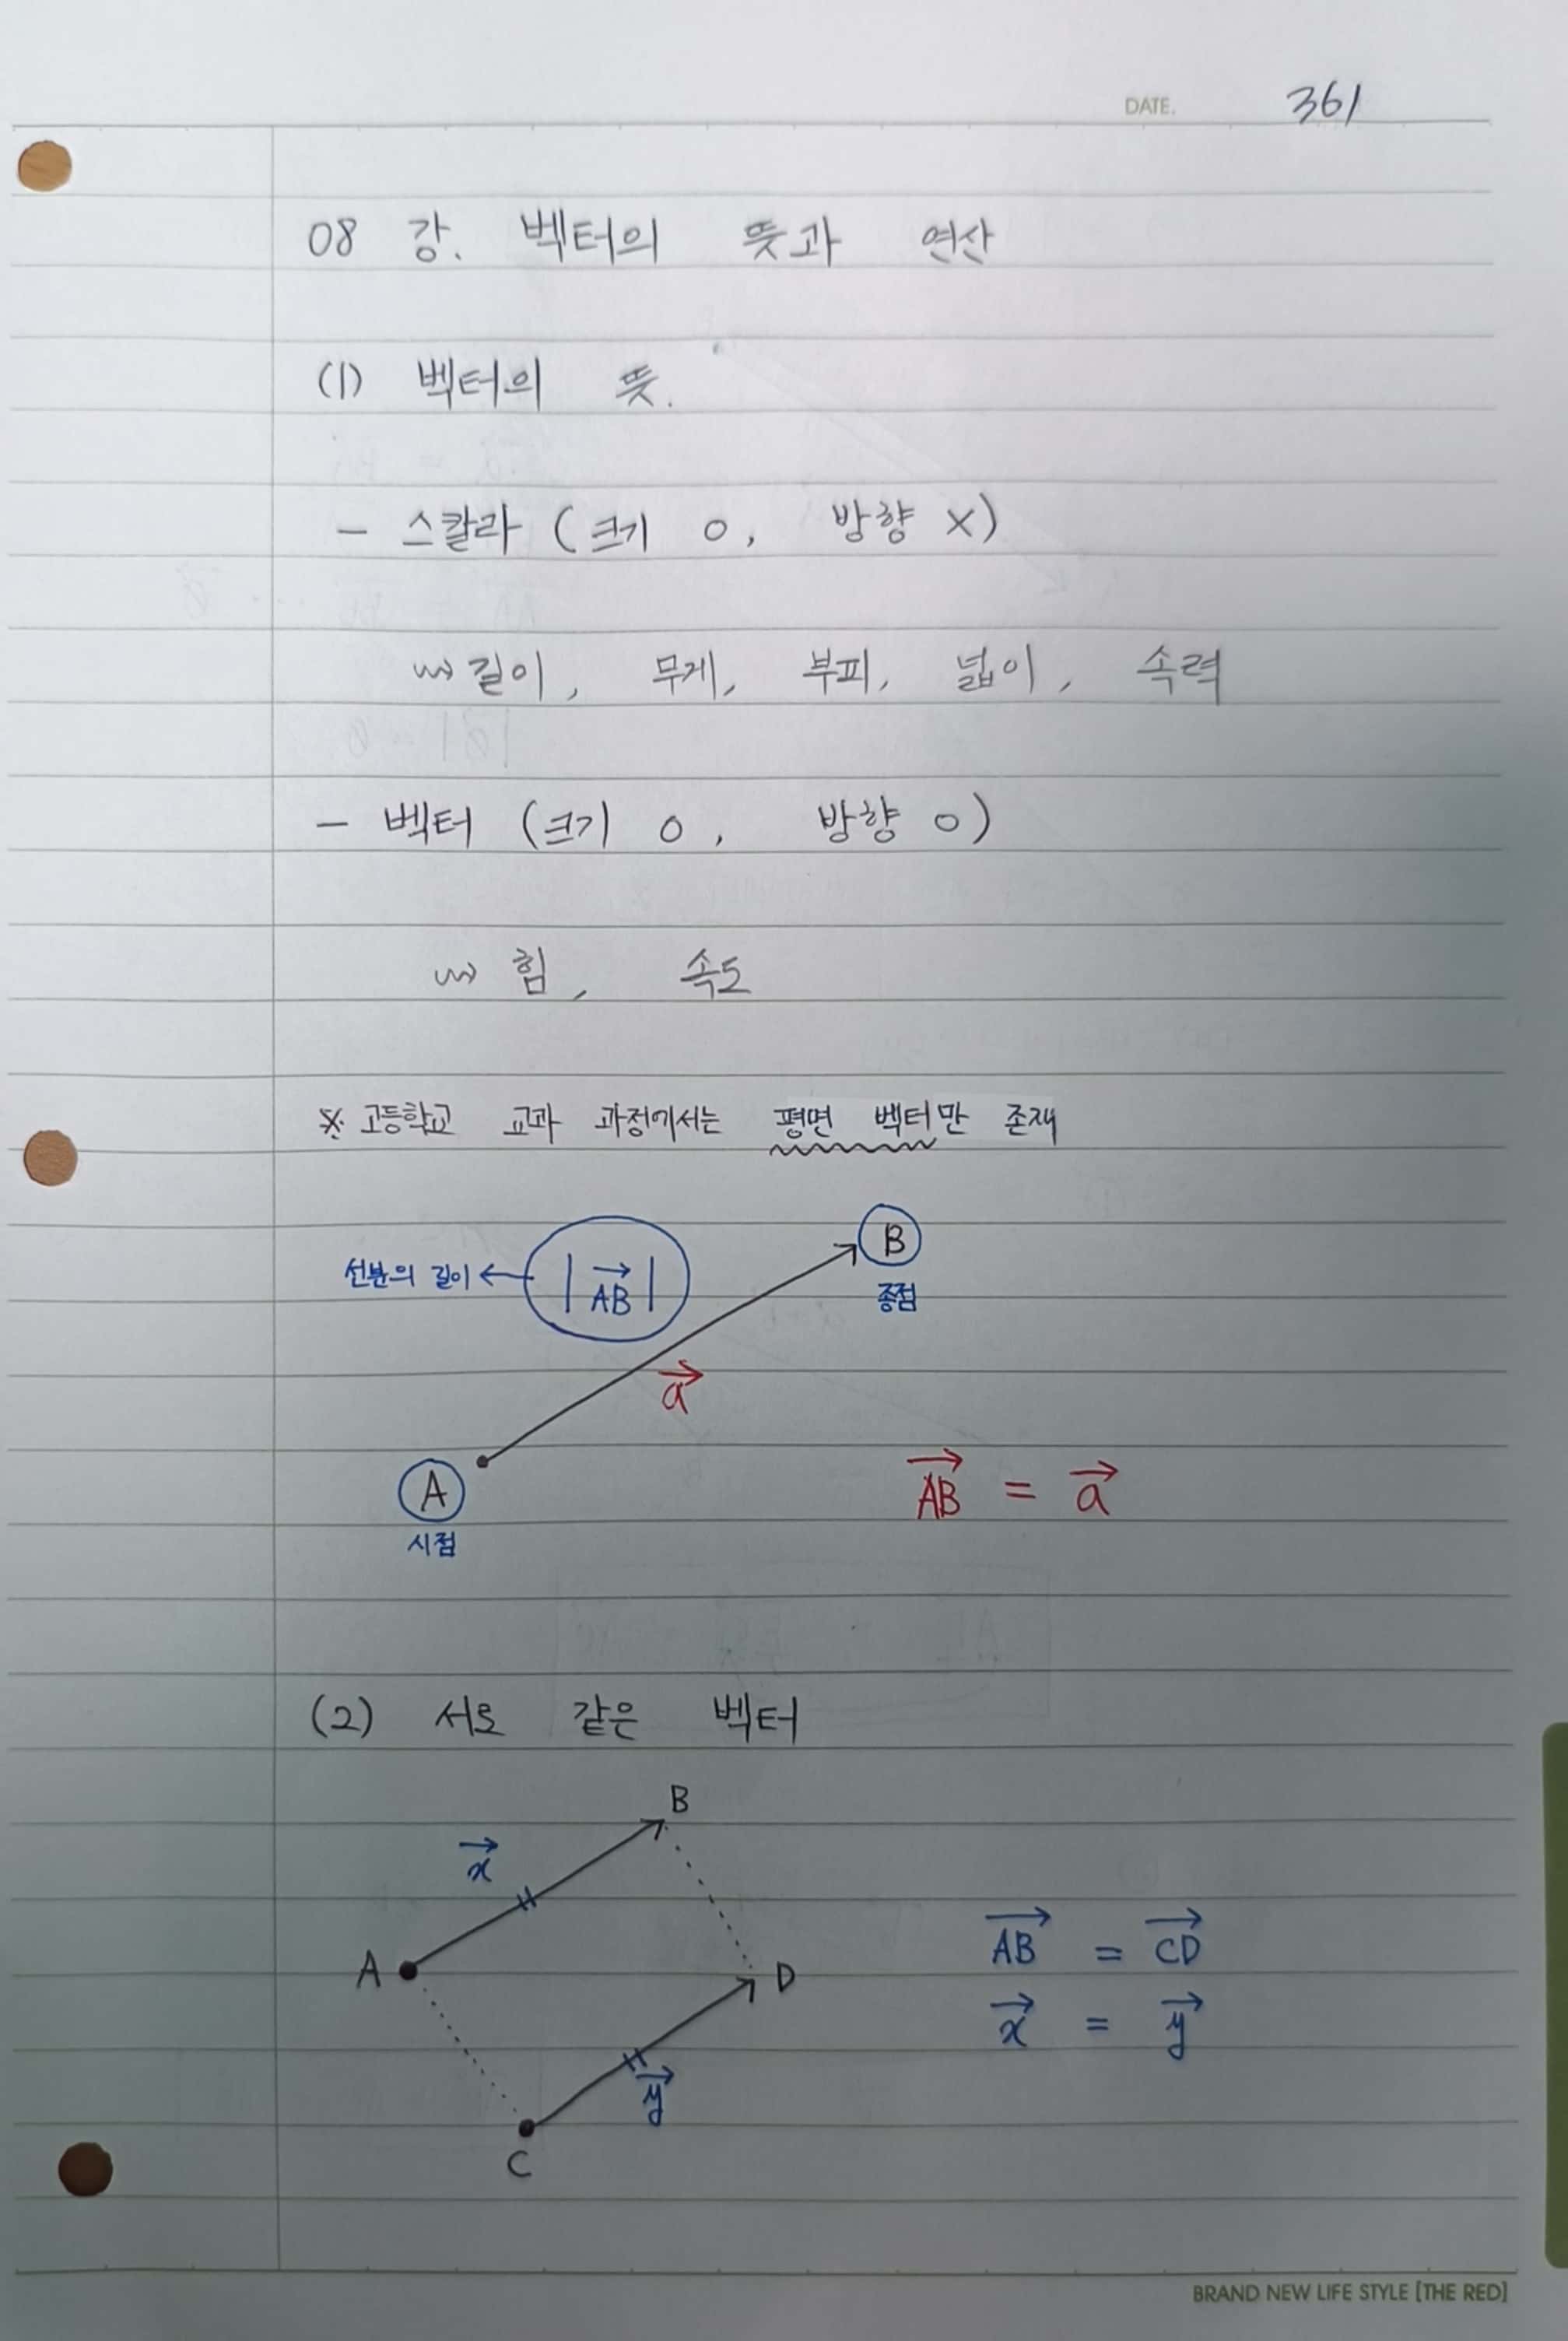 DATE. 361
08 강. 벡터의 뜻과 연산
(1) 벡터의 뜻.
- 스칼라 (크기 O, 방향 X)
⇝ 길이, 무게, 부피, 넓이, 속력
- 벡터 (크기 O, 방향 O)
⇝ 힘, 속도
※ 고등학교 교과 과정에서는 평면 벡터만 존재
B
선분의 길이 ← |\overrightarrow{AB}|
종점
\overrightarrow{a}
A
\overrightarrow{AB} = \overrightarrow{a}
시점
(2) 서로 같은 벡터
B
\overrightarrow{x}
A
D
\overrightarrow{AB} = \overrightarrow{CD}
\overrightarrow{x} = \overrightarrow{y}
\overrightarrow{y}
C
BRAND NEW LIFE STYLE [THE RED]